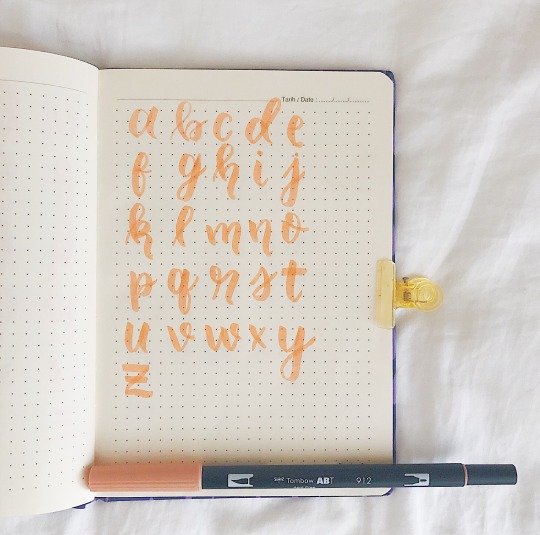 Tarih / Date : ....../....../......
a b c d e
f g h i j
k l m n o
p q r s t
u v w x y
z
Tombow ABT 912